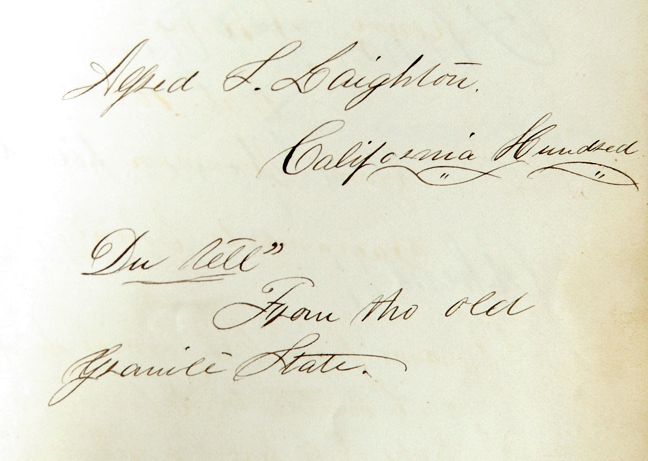 Alfred L. Laighton.
California Hundred
Du tell"
From the old
Granite State.